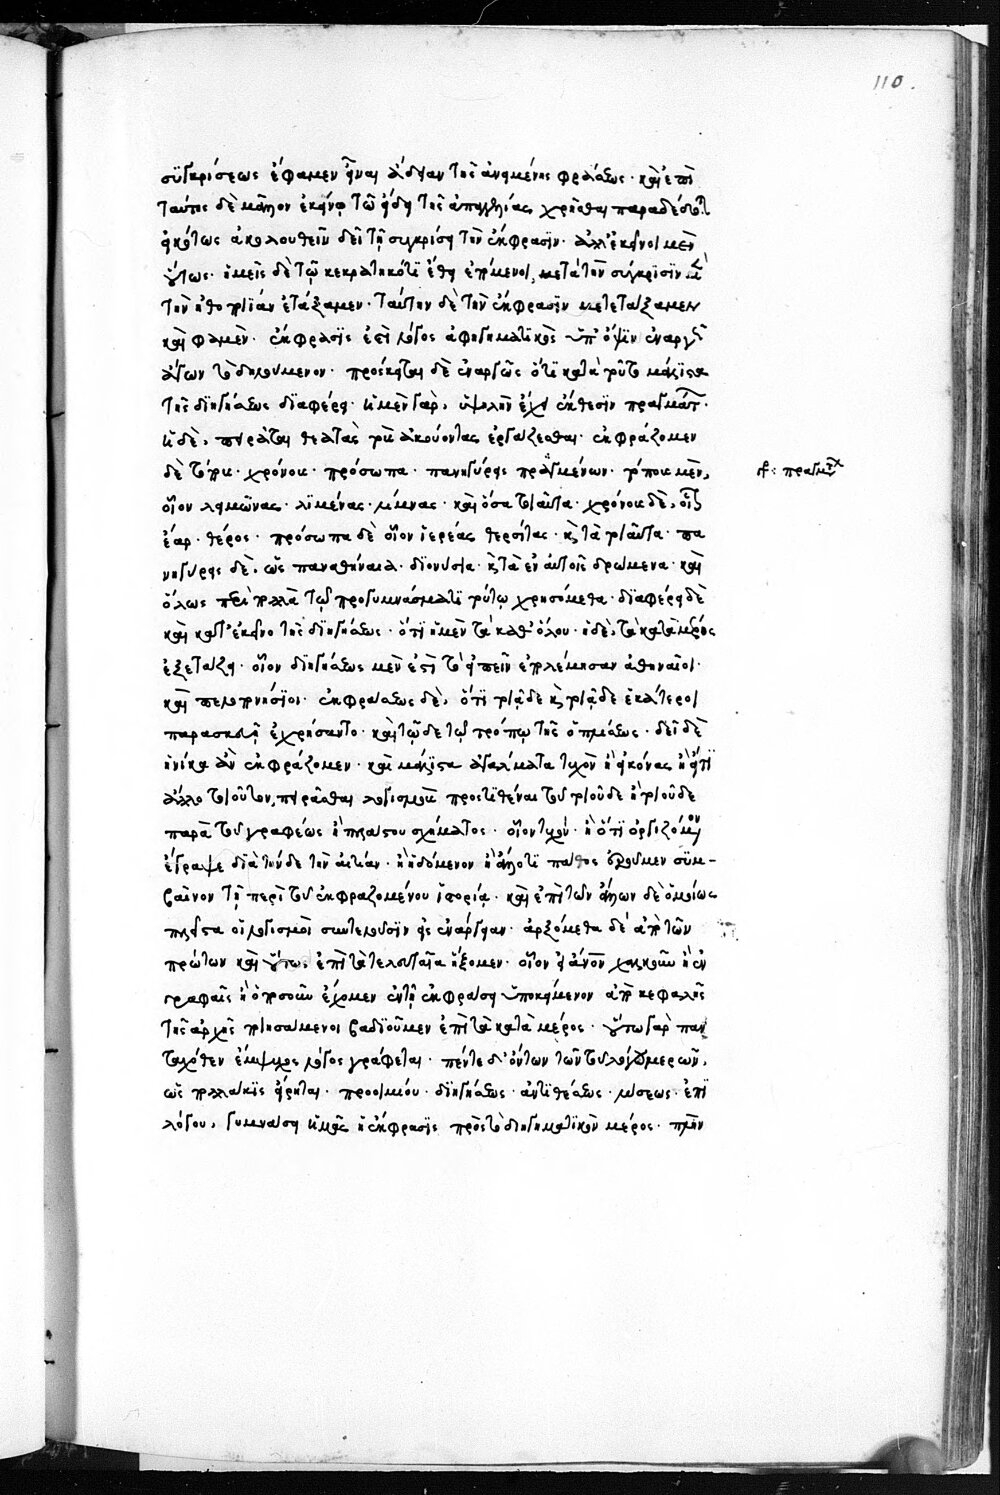 110.
συγκρίσεως ἔφαμεν εἶναι ἄδειαν τῆς ἀνειμένης φράσεως· καὶ ἐπὶ
ταύτης δὲ μᾶλλον ἐκείνῳ τῷ εἴδει τῆς ἀπαγγελίας χρῆσθαι παραδέδοται
εἰκότως ἀκολουθεῖν δεῖ τῇ συγκρίσει τὴν ἔκφρασιν· ἀλλ' ἐκεῖνοι μὲν
οὕτως· ἡμεῖς δὲ τῷ κεκρατηκότι ἔθει ἑπόμενοι, μετὰ τὴν σύγκρισιν
τὴν ἠθοποιΐαν ἐτάξαμεν· ταύτην δὲ τὴν ἔκφρασιν μετετάξαμεν
καὶ φαμέν· ἔκφρασις ἐστὶ λόγος ἀφηγηματικὸς ὑπ' ὄψιν ἐναργῶς
ἄγων τὸ δηλούμενον· πρόσκειται δὲ ἐναργῶς ὅτι κατὰ τοῦτο μάλιστα
τῆς διηγήσεως διαφέρει· ἡ μὲν γὰρ, ψιλὴν ἔχει ἔκθεσιν πραγμάτων·
ἡ δὲ, πειρᾶται θεατὰς τοὺς ἀκούοντας ἐργάζεσθαι· ἐκφράζομεν
δὲ τόπους· χρόνους· πρόσωπα· πανηγύρεις πραγμένων· τόπους μὲν,
πραγμ
οἷον λειμῶνας· λιμένας· λίμνας· καὶ ὅσα τοιαῦτα· χρόνους δὲ, οἷον
ἔαρ· θέρος· πρόσωπα δὲ οἷον ἱερέας θερσίτας· καὶ τὰ τοιαῦτα· πα
νηγύρεις δὲ, ὡς παναθήναια· διονύσια· καὶ τὰ ἐν αὐτοῖς δρώμενα· καὶ
ὅλως περὶ πολλὰ τῷ προγυμνάσματι τούτῳ χρησόμεθα· διαφέρει δὲ
καὶ κατ' ἐκεῖνο τῆς διηγήσεως· ὅτι ἡ μὲν τὰ καθ' ὅλου· ἡ δὲ, τὰ κατὰ μέρος
ἐξετάζει· οἷον διηγήσεως μέν ἐστι τὸ εἰπεῖν ἐπολέμησαν ἀθηναῖοι
καὶ πελοποννήσιοι· ἐκφράσεως δὲ, ὅτι τοιᾷδε καὶ τοιᾷδε ἑκάτεροι
παρασκευῇ ἐχρήσαντο· καὶ τῷδε τῷ τρόπῳ τῆς ὁπλίσεως· δεῖ δὲ
ἡνίκα ἂν ἐκφράζομεν· καὶ μάλιστα ἀγάλματα τυχὸν ἢ εἰκόνας ἢ εἴ τι
ἄλλο τοιοῦτον, πειρᾶσθαι λογισμοὺς προστιθέναι τοῦ τοιοῦδε ἢ τοιοῦδε
παρὰ τοῦ γραφέως ἢ πλάστου σχήματος· οἷον τυχὸν· ἢ ὅτι ὀργιζόμενον
ἔγραψε διὰ τήνδε τὴν αἰτίαν· ἢ ἡδόμενον ἢ ἄλλο τι πάθος ἐροῦμεν συμ-
βαῖνον τῇ περὶ τοῦ ἐκφραζομένου ἱστορίᾳ· καὶ ἐπὶ τῶν ἄλλων δὲ ὁμοίως
πλεῖστα οἱ λογισμοὶ συντελοῦσιν εἰς ἐνάργειαν· ἀρξόμεθα δὲ ἀπὸ τῶν
πρώτων καὶ οὕτως ἐπὶ τὰ τελευταῖα ἥξομεν· οἷον εἰ ἄνθρωπον χαλκοῦν ἢ ἐν
γραφαῖς ἢ ὁπωσοῦν ἔχομεν ἐν τῇ ἐκφράσει ὑποκείμενον ἀπὸ κεφαλῆς
τῆς ἀρχῆς ποιησάμενοι βαδιοῦμεν ἐπὶ τὰ κατὰ μέρος· οὕτω γὰρ παν
ταχόθεν ἔμψυχος λόγος γράφεται· πέντε δ' ὄντων τῶν τοῦ λόγου μερῶν,
ὡς πολλάκις εἴρηται· προοιμίου· διηγήσεως· ἀντιθέσεως· λύσεως· ἐπι
λόγου, γυμνάσει ἡμᾶς ἡ ἔκφρασις πρὸς τὸ διηγηματικὸν μέρος· πλὴν